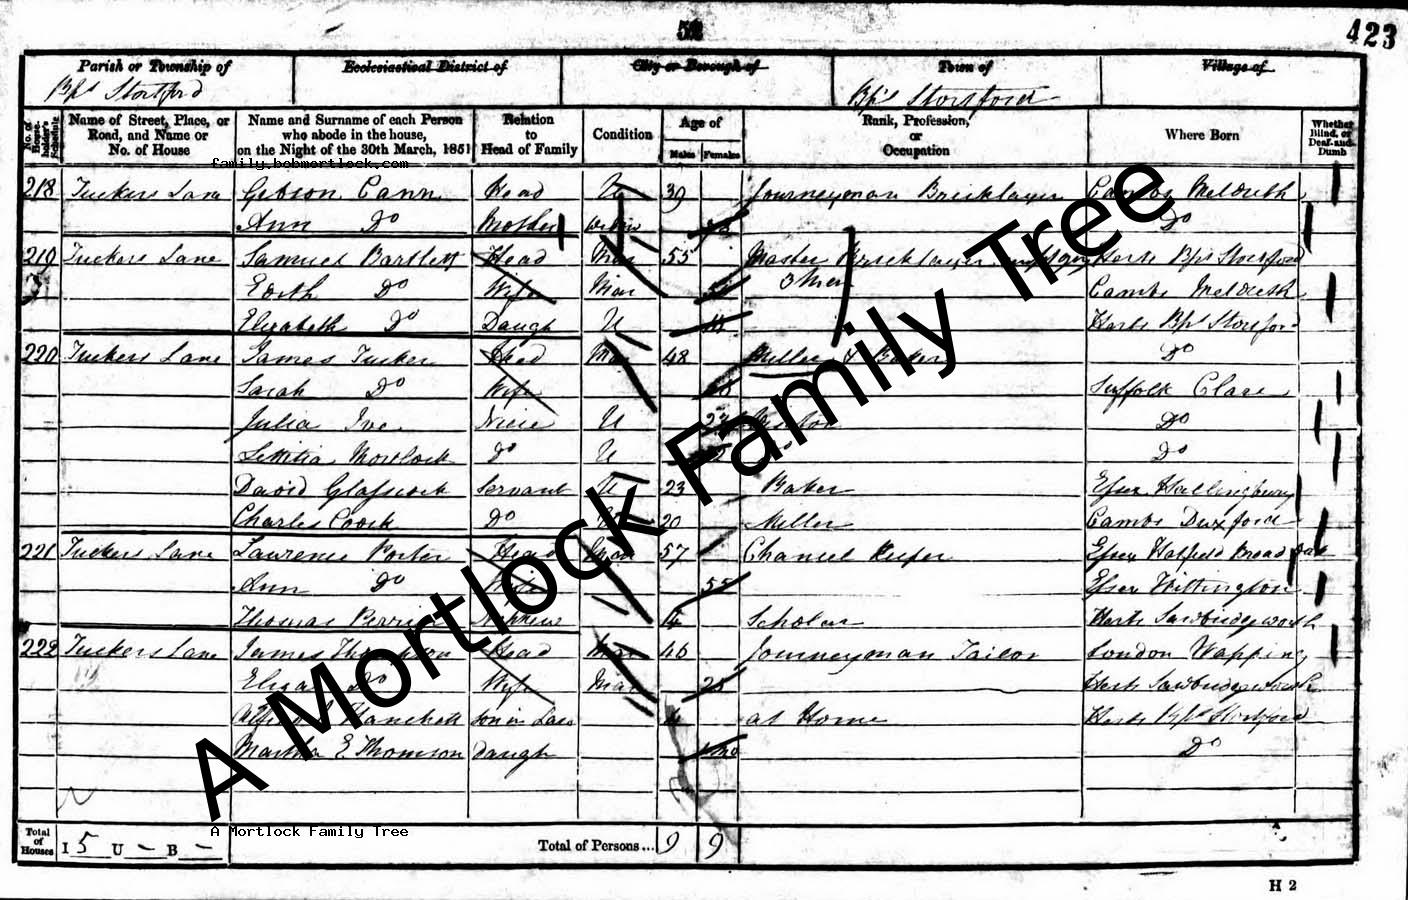 423
Parish or Township of Ecclesiastical District of City or Borough of Town of Village of
Bp's Stortford Bp's Stortford
No. of House-holder's Schedule
Name of Street, Place, or Road, and Name or No. of House
Name and Surname of each Person who abode in the house, on the Night of the 30th March, 1851
Relation to Head of Family
Condition
Age of
Males Females
Rank, Profession, or Occupation
Where Born
Whether Blind, or Deaf-and-Dumb
family.bobmortlock.com
218 Tuckers Lane Gibson Cann Head U 39 Journeyman Bricklayer Cambs Meldreth
Ann Do Mother Do
219 Tuckers Lane Samuel Bartlett Head Mar 55 Master Bricklayer Herts Bp's Stortford
Edith Do Wife Mar 3 Men Cambs Meldreth
Elizabeth Do Daugh U Herts Bp's Stortford
220 Tuckers Lane James Tucker Head Mar 48 Miller & Baker Do
Sarah Do Wife Suffolk Clare
Julia Ive Niece U Do
Letitia Mortlock Do U Do
David Glasscock Servant U 23 Baker Essex Hallingbury
Charles Coock Do U 20 Miller Cambs Duxford
221 Tuckers Lane Lawrence Porter Head Mar 57 Chancel Keeper Essex Hatfield Broad Oak
Ann Do Wife 55 Essex
Thomas Perrin Nephew Scholar Herts Sawbridgeworth
222 Tuckers Lane James Thompson Head Mar 46 Journeyman Tailor London Wapping
Eliza Do Wife Mar 25 Herts Sawbridgeworth
Hanchett Son in Law 4 at Home Herts Bp's Stortford
Martha E Thomson Daugh Do
A Mortlock Family Tree
A Mortlock Family Tree
Total of Houses I 5 U – B – Total of Persons... 9 9
H 2